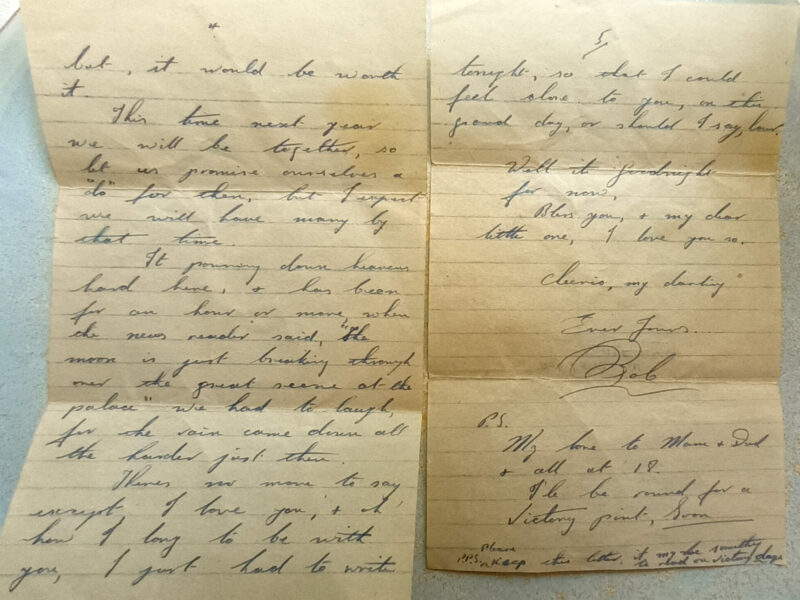 4
but, it would be worth
it.
This time next year
we will be together, so
let us promise ourselves a
"do" for then, but I expect
we will have many by
that time.
It pouring down heavens
hard here, & has been
for an hour or more, when
the news reader said, "the
moon is just breaking through
over the great scene at the
palace" we had to laugh,
for the rain came down all
the harder just then.
Theres no more to say,
except I love you, & oh
how I long to be with
you, I just had to write
5/
tonight, so that I could
feel close to you, on this
grand day, or should I say, hour.
Well its Goodnight
for now,
Bless you, & my dear
little one, I love you so.
Cheerio, my darling
Ever Yours...
Bob
P.S.
My love to Mam & Dad
& all at 18.
I'le be round for a
Victory pint, Soon
Please
P.P.S. Keep this letter, it my be something
to read on victory days